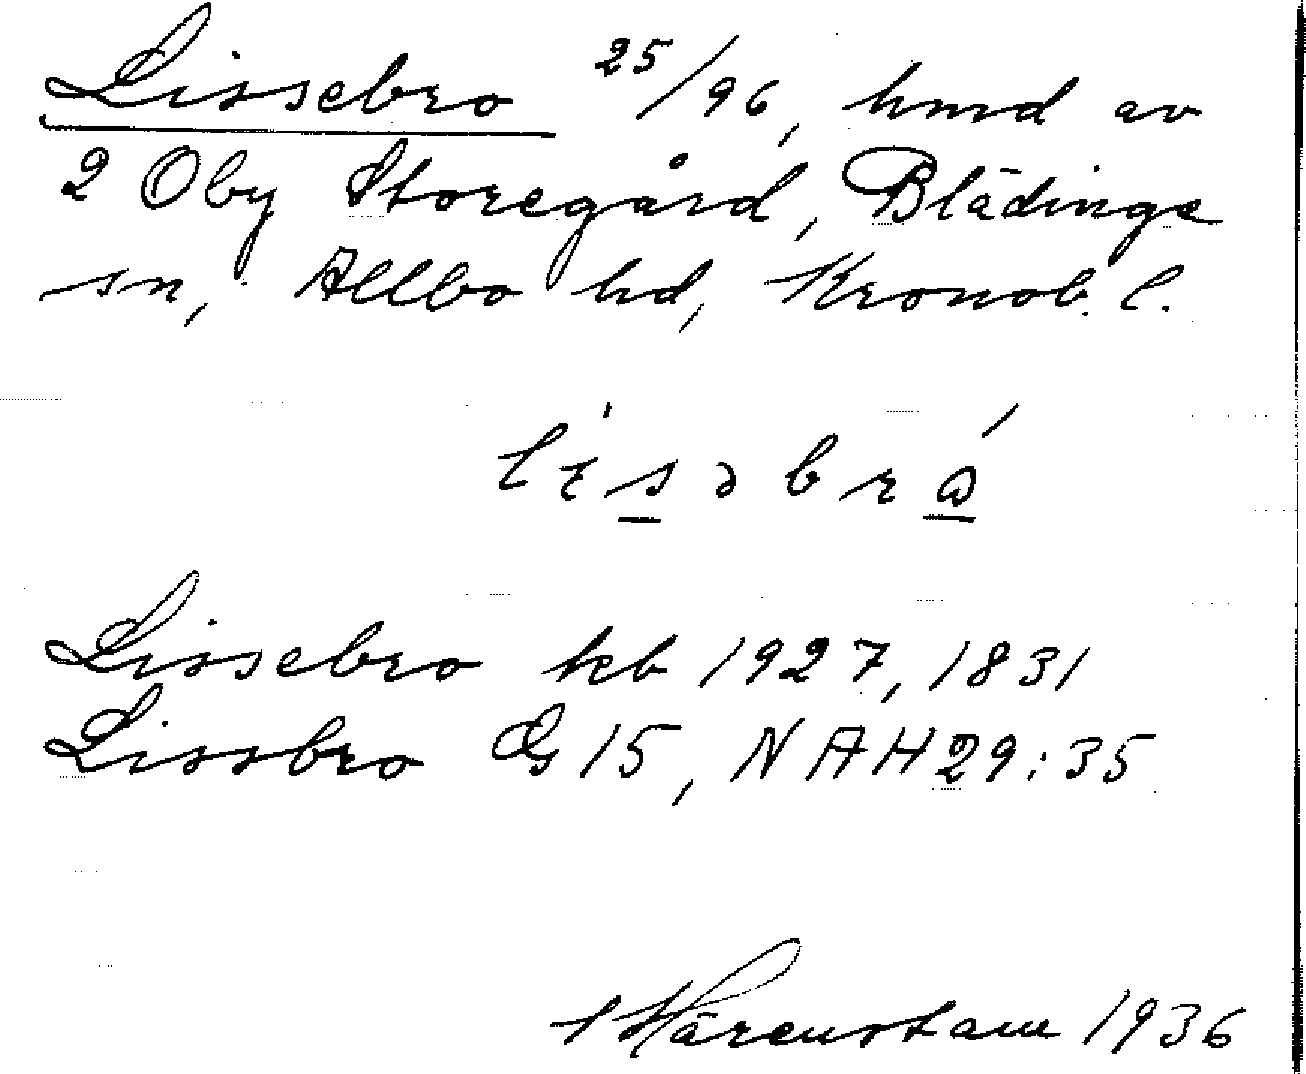 Lissebro 25/96, hmd av
2 Oby Storegård, Blädinge
sn, Allbo hd, Kronob. l.
lisəbrω
Lissebro kb 1927, 1831
Lissbro G 15, NAH 29:35
Härenstam 1936